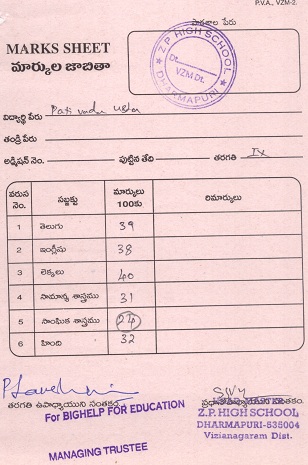 P.V.A., VZM-2.
పాఠశాల పేరు
MARKS SHEET
మార్కుల జాబితా
Z.P. HIGH SCHOOL
Dt.
VZM Dt.
DHARMAPURI
విద్యార్థి పేరు
తండ్రి పేరు
అడ్మిషన్ నెం. పుట్టిన తేది తరగతి IX
వరుస నెం. సబ్జక్టు మార్కులు 100కు రిమార్కులు
1 తెలుగు 39
2 ఇంగ్లీషు 38
3 లెక్కలు 40
4 సామాన్య శాస్త్రము 31
5 సాంఘిక శాస్త్రము 24
6 హింది 32
తరగతి ఉపాధ్యాయుని సంతకం
For BIGHELP FOR EDUCATION
MANAGING TRUSTEE
Z.P. HIGH SCHOOL
DHARMAPURI-535004
Vizianagaram Dist.